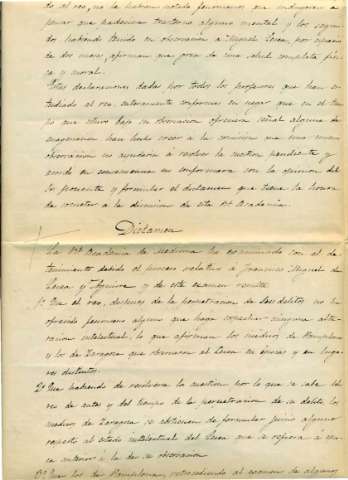 do al reo, no le habian notado fenomenos que indujeran a
pensar que padeciera trastorno alguno mental y los segun
dos habiendo tenido en observacion a Miguel Lecea, por espacio
de dos meses, afirman que goza de una salud completa físi
ca y moral.
Estas declaraciones dadas por todos los profesores que han es
tudiado al reo, enteramente conformes en negar que en el tiem
po que estuvo bajo su observacion ofreciera señal alguna de
enagenacion han hecho creer a la comision que una nueva
observacion no ayudaria á resolver la cuestion pendiente y
acordó en consecuencia en conformarse con la opinion del
Sr presente y formular el dictamen que tiene la honra
de someter a la discusion de esta Rl Academia.
Dictamen
La Rl Academia de Medicina ha examinado con el de
tenimiento debido el proceso relativo á Francisco Miguel de
Lecea y Aguirre y de este examen resulta
1º Que el reo, despues de la perpetracion de sus delitos no ha
ofrecido fenomeno alguno que haga sospechar ninguna alte
racion intelectual, lo que afirman los médicos de Pamplona
y los de Zaragoza que observaron al Lecea en épocas y en luga
res distintos.
2º Que habiendo de resolverse la cuestion por lo que se sabe del
reo de antes y del tiempo de la perpetracion de su delito, los
medicos de Zaragoza se abstienen de formular juicio alguno
respecto al estado intelectual del Lecea que se refiera á épo
ca anterior á la de su observacion
3º Que los de Pamplona, retrocediendo al examen de algunos